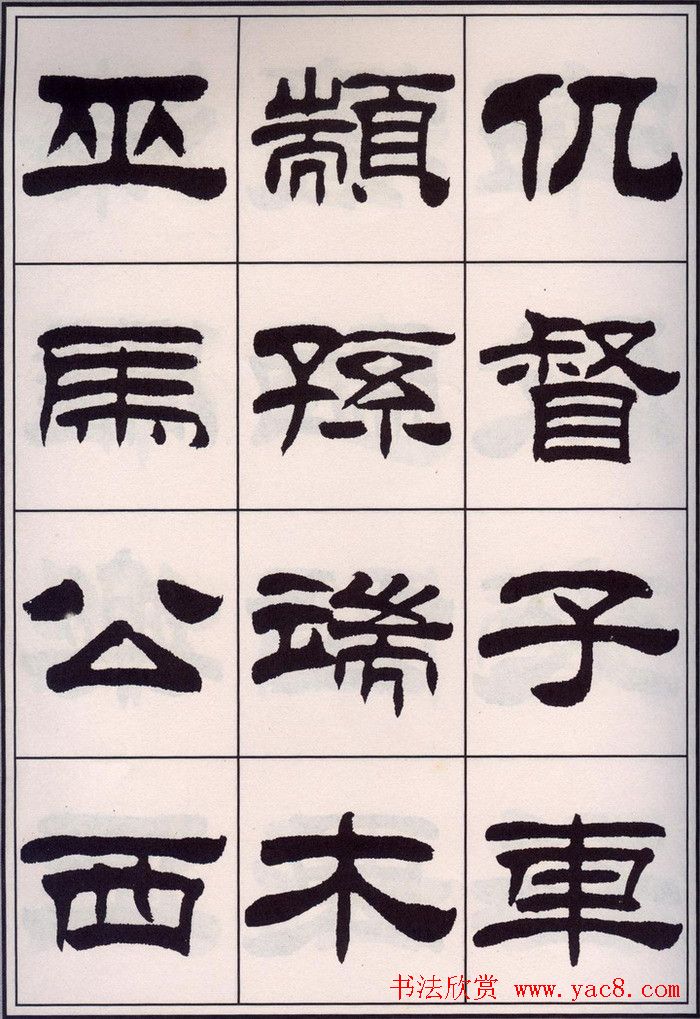 仉督子車
顓孫端木
巫馬公西
书法欣赏 www.yac8.com